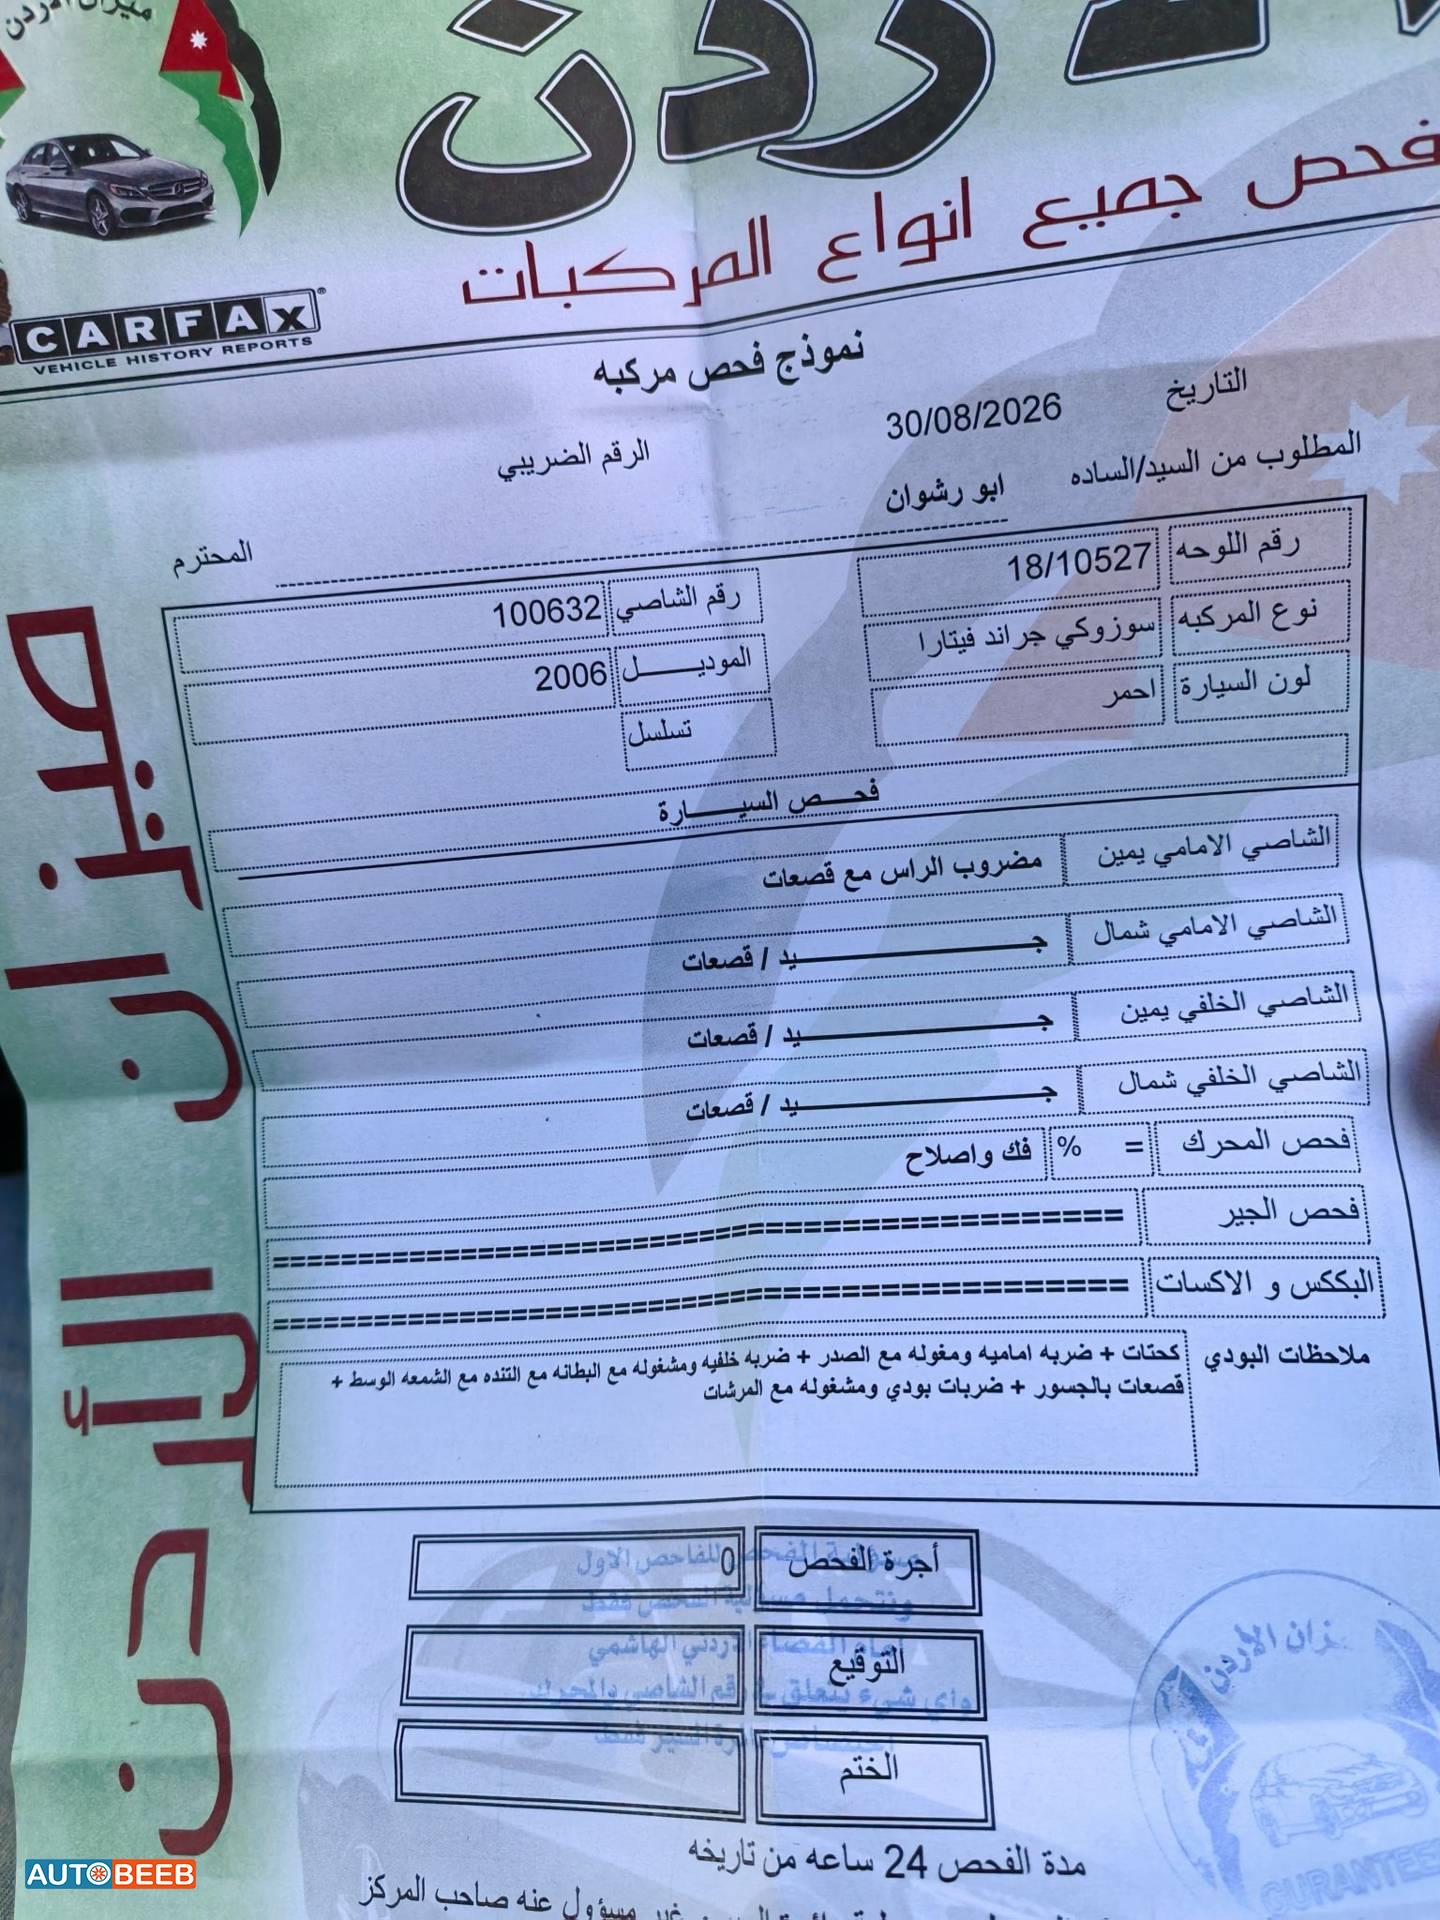 ميزان الأردن
الأردن
فحص جميع انواع المركبات
CARFAX
VEHICLE HISTORY REPORTS
نموذج فحص مركبه
التاريخ 30/08/2026
الرقم الضريبي
المطلوب من السيد/الساده ابو رشوان
المحترم
رقم اللوحه 18/10527 رقم الشاصي 100632
نوع المركبه سوزوكي جراند فيتارا الموديـــــل 2006
لون السيارة احمر تسلسل
فحـــص السيـــــارة
الشاصي الامامي يمين مضروب الراس مع قصعات
الشاصي الامامي شمال جـــــــــــــيد / قصعات
الشاصي الخلفي يمين جـــــــــــــيد / قصعات
الشاصي الخلفي شمال جـــــــــــــيد / قصعات
فحص المحرك = % فك واصلاح
فحص الجير ========================================
البككس و الاكسات ========================================
ملاحظات البودي كحتات + ضربه اماميه ومغوله مع الصدر + ضربه خلفيه ومشغوله مع البطانه مع التنده مع الشمعه الوسط +
قصعات بالجسور + ضربات بودي ومشغوله مع المرشات
ميزان الأردن
أجرة الفحص 0
التوقيع
الختم
للفاحص الاول
ونتحمل مسؤلية الفحص فقط
امام القضاء الاردني الهاشمي
واي شيء يتعلق برقم الشاصي والمحرك
ميزان الأردن
GURANTEE
مدة الفحص 24 ساعه من تاريخه
غير مسؤول عنه صاحب المركز
AUTOBEEB